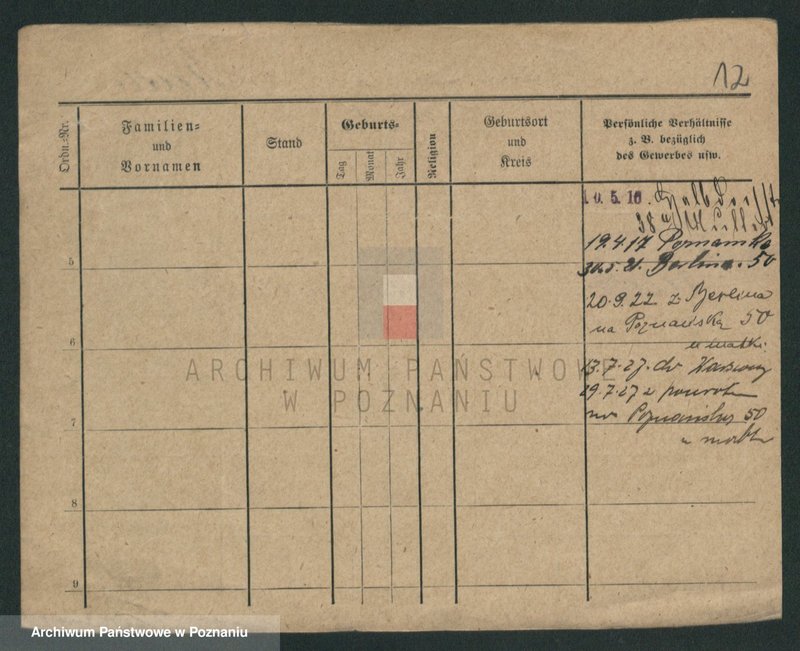 12
Ordn.-Nr.
Familien-
und
Vornamen
Stand
Geburts-
Tag
Monat
Jahr
Religion
Geburtsort
und
Kreis
Persönliche Verhältnisse
z. B. bezüglich
des Gewerbes usw.
5.16.
38
19.4.17 Poznanska
5.21. Berlina. 50
5
20.9.22 z Berlina
na Poznańską 50
u matki
6
13.7.27 do Warszawy
29.7.27 z powrotem
na Poznańską 50
u matki
7
8
9
ARCHIWUM PAŃSTWOWE
W POZNANIU
Archiwum Państwowe w Poznaniu